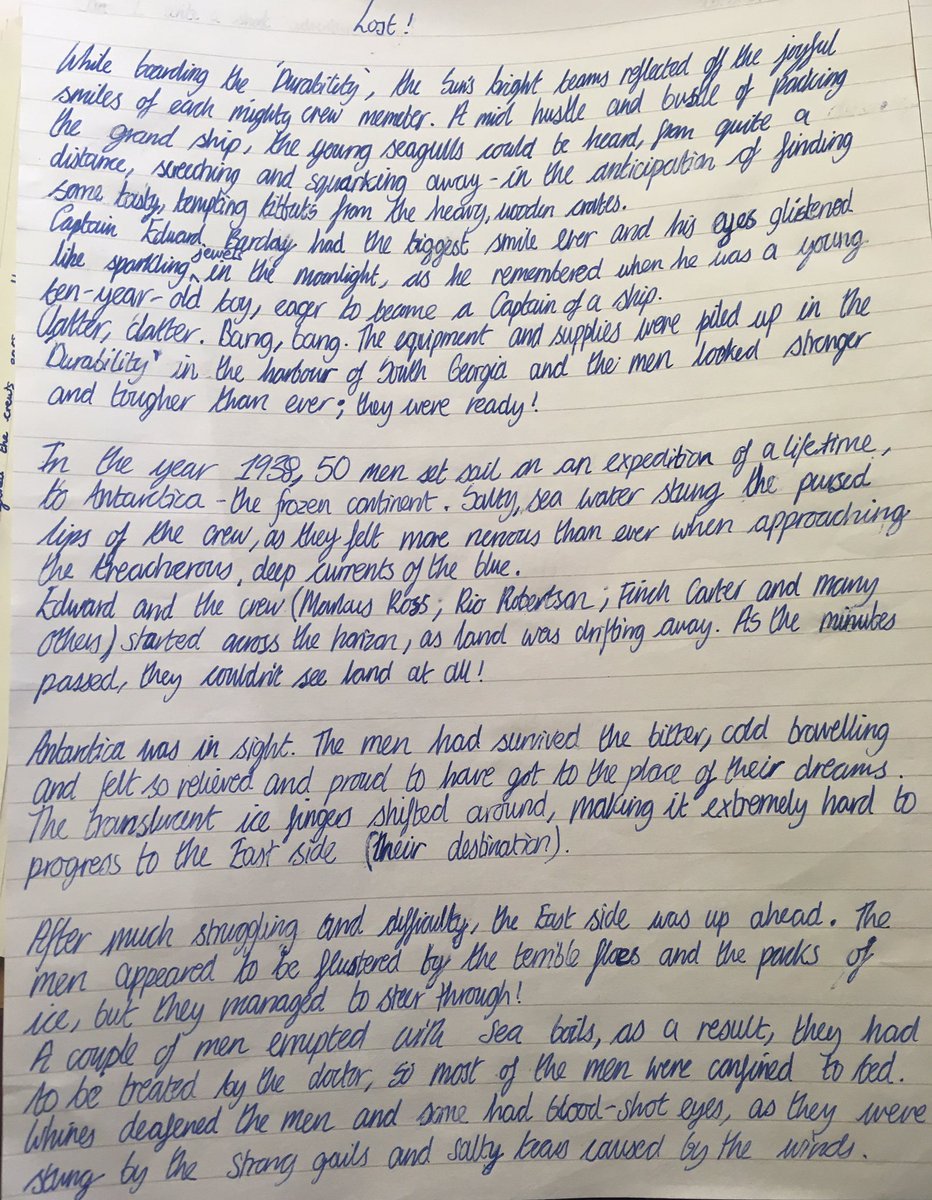 Lost!
While boarding the 'Durability', the Sun's bright beams reflected off the joyful
smiles of each mighty crew member. A mid hustle and bustle of packing
the grand ship, the young seagulls could be heard, from quite a
distance, screeching and squarking away - in the anticipation of finding
some tasty, tempting titbits from the heavy, wooden crates.
Captain Edward Barclay had the biggest smile ever and his eyes glistened
like sparkling jewels in the moonlight, as he remembered when he was a young
ten-year-old boy, eager to become a Captain of a ship.
Clatter, clatter. Bang, bang. The equipment and supplies were piled up in the
'Durability' in the harbour of South Georgia and the men looked stronger
and tougher than ever; they were ready!
In the year 1938, 50 men set sail on an expedition of a lifetime,
to Antarctica - the frozen continent. Salty, sea water stung the pursed
lips of the crew, as they felt more nervous than ever when approaching
the treacherous, deep currents of the blue.
Edward and the crew (Marcus Ross; Rio Robertson; Finch Carter and many
others) started across the horizon, as land was drifting away. As the minutes
passed, they couldn't see land at all!
Antarctica was in sight. The men had survived the bitter, cold travelling
and felt so relieved and proud to have got to the place of their dreams.
The translucent ice fingers shifted around, making it extremely hard to
progress to the East side (their destination).
After much struggling and difficulty, the East side was up ahead. The
men appeared to be flustered by the terrible floes and the packs of
ice, but they managed to steer through!
A couple of men errupted with sea boils, as a result, they had
to be treated by the doctor, so most of the men were confined to bed.
Whines deafened the men and some had blood-shot eyes, as they were
stung by the strong gails and salty tears caused by the winds.
the crews ears